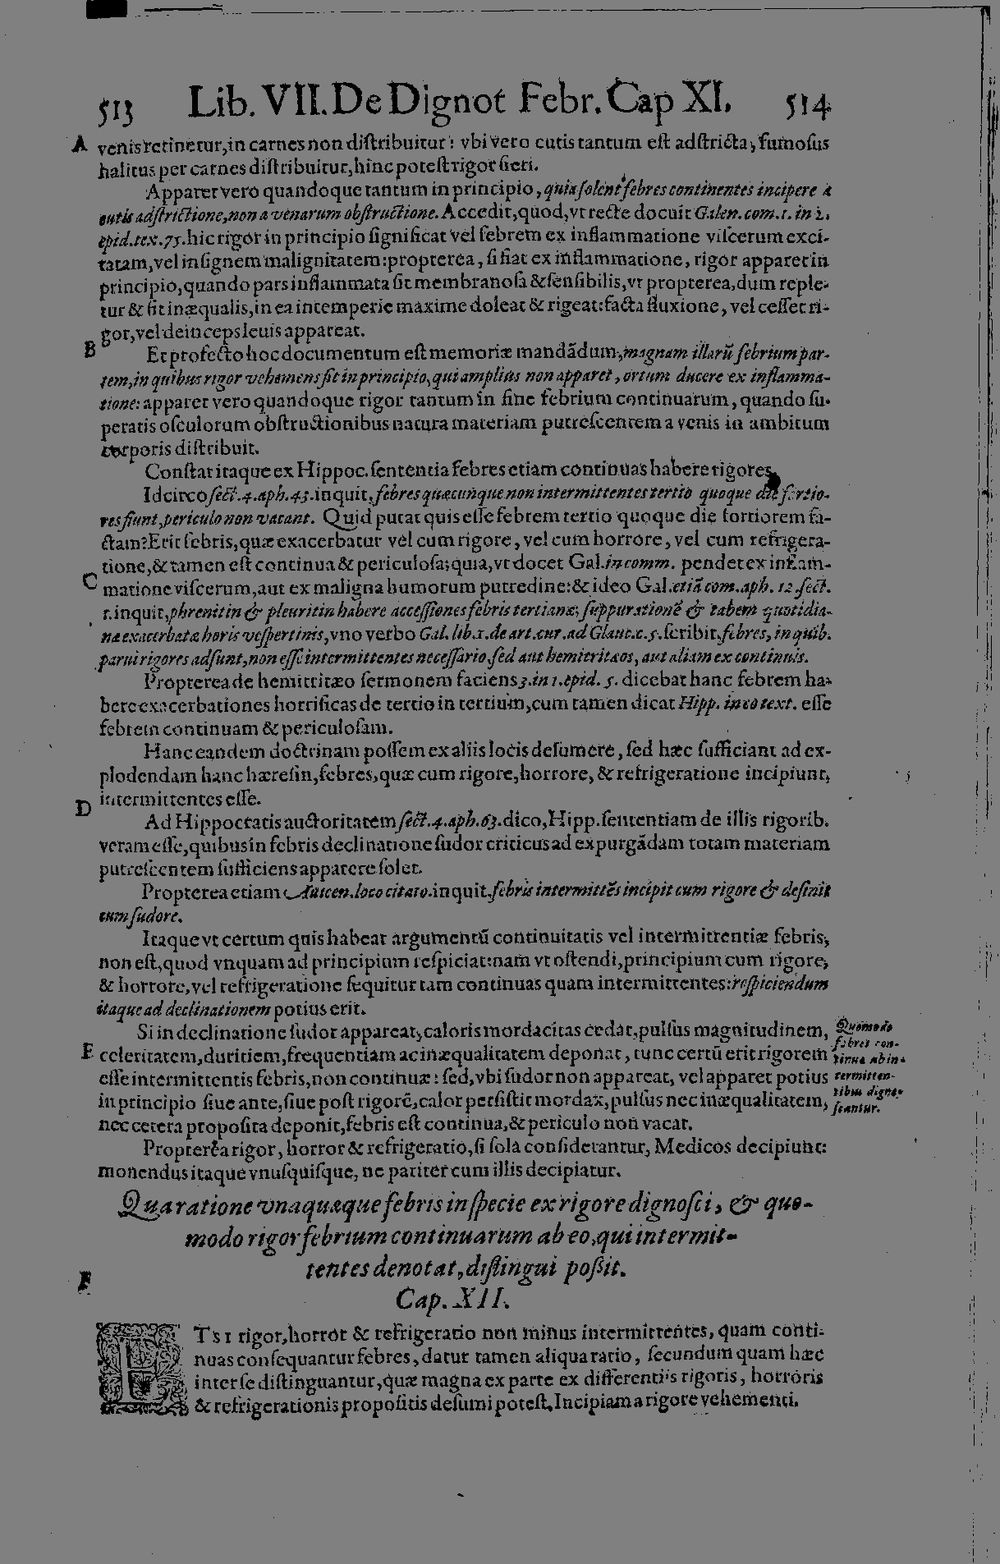 513 Lib. VII. De Dignot Febr. Cap XI. 514
A venis retinetur, in carnes non distribuitur: vbi vero cutis tantum est adstricta, fumosus
halitus per carnes distribuitur, hinc potest rigor fieri.
Apparet vero quandoque tantum in principio, quia solent febres continentes incipere a
cutis adstrictione, non a venarum obstructione. Accedit, quod, vt recte docuit Galen. com. 1. in 1.
epid. tex. 75. hic rigor in principio significat vel febrem ex inflammatione viscerum exci-
tatam, vel insignem malignitatem: propterea, si fiat ex inflammatione, rigor apparet in
principio, quando pars inflammata sit membranosa & sensibilis, vt propterea, dum reple-
tur & fit inæqualis, in ea intemperie maxime doleat & rigeat: facta fluxione, vel cesset ri-
gor, vel deinceps leuis appareat.
B Et profecto hoc documentum est memoriæ mandãdum, magnam illarũ febrium par-
tem, in quibus rigor vehemens fit in principio, qui amplius non apparet, ortum ducere ex inflamma-
tione: apparet vero quandoque rigor tantum in fine febrium continuarum, quando su-
peratis osculorum obstructionibus natura materiam putrescentem a venis in ambitum
corporis distribuit.
Constat itaque ex Hippoc. sententia febres etiam continuas habere rigores,
Idcirco sect. 4. aph. 43. inquit, febres quæcunque non intermittentes tertio quoque die fortio-
res fiunt, periculo non vacant. Quid putat quis esse febrem tertio quoque die fortiorem fa-
ctam? Erit febris, quæ exacerbatur vel cum rigore, vel cum horrore, vel cum refrigera-
tione, & tamen est continua & periculosa; quia, vt docet Gal. in comm. pendet ex inflam-
C matione viscerum, aut ex maligna humorum putredine: & ideo Gal. etiã com. aph. 12. sect.
1. inquit, phrenitin & pleuritin habere accessiones febris tertianæ, suppurationẽ & tabem quotidia-
næ exacerbatæ horis vespertinis, vno verbo Gal. lib. 1. de art. cur. ad Glauc. c. 5. scribit, febres, in quib.
parui rigores adsunt, non esse intermittentes necessario, sed aut hemitritæos, aut aliam ex continuis.
Propterea de hemitritæo sermonem faciens 3. in 1. epid. 5. dicebat hanc febrem ha-
bere exacerbationes horrificas de tertio in tertium, cum tamen dicat Hipp. in eo text. esse
febrem continuam & periculosam.
Hanc eandem doctrinam possem ex aliis locis desumere, sed hæc sufficiant ad ex-
plodendam hanc hæresin, febres, quæ cum rigore, horrore, & refrigeratione incipiunt,
intermittentes esse.
D Ad Hippocratis auctoritatem sect. 4. aph. 63. dico, Hipp. sententiam de illis rigorib.
veram esse, quibus in febris declinatione sudor criticus ad expurgãdam totam materiam
putrescentem sufficiens apparere solet.
Propterea etiam Auicen. loco citato. inquit, febris intermittẽs incipit cum rigore & desinit
cum sudore.
Itaque vt certum quis habeat argumentũ continuitatis vel intermittentiæ febris,
non est, quod vnquam ad principium respiciat: nam vt ostendi, principium cum rigore,
& horrore, vel refrigeratione sequitur tam continuas quam intermittentes: respiciendum
itaque ad declinationem potius erit.
Si in declinatione sudor appareat, caloris mordacitas cedat, pulsus magnitudinem,
E celeritatem, duritiem, frequentiam ac inæqualitatem deponat, tunc certũ erit rigorem
esse intermittentis febris, non continuæ: sed, vbi sudor non appareat, vel apparet potius
in principio siue ante, siue post rigorẽ, calor persistit mordax, pulsus nec inæqualitatem,
nec cetera proposita deponit, febris est continua, & periculo non vacat.
Quomodo
febres con-
tinuæ ab in-
termitten-
tibus digno-
scantur.
Propterea rigor, horror & refrigeratio, si sola considerantur, Medicos decipiunt:
monendus itaque vnusquisque, ne pariter cum illis decipiatur.
Qua ratione vnaquæque febris in specie ex rigore dignosci, & quo-
modo rigor febrium continuarum ab eo, qui intermit-
tentes denotat, distingui possit.
F
Cap. XII.
ETSI rigor, horror & refrigeratio non minus intermittentes, quam conti-
nuas consequantur febres, datur tamen aliqua ratio, secundum quam hæc
inter se distinguantur, quæ magna ex parte ex differentiis rigoris, horroris
& refrigerationis propositis desumi potest. Incipiam a rigore vehementi.